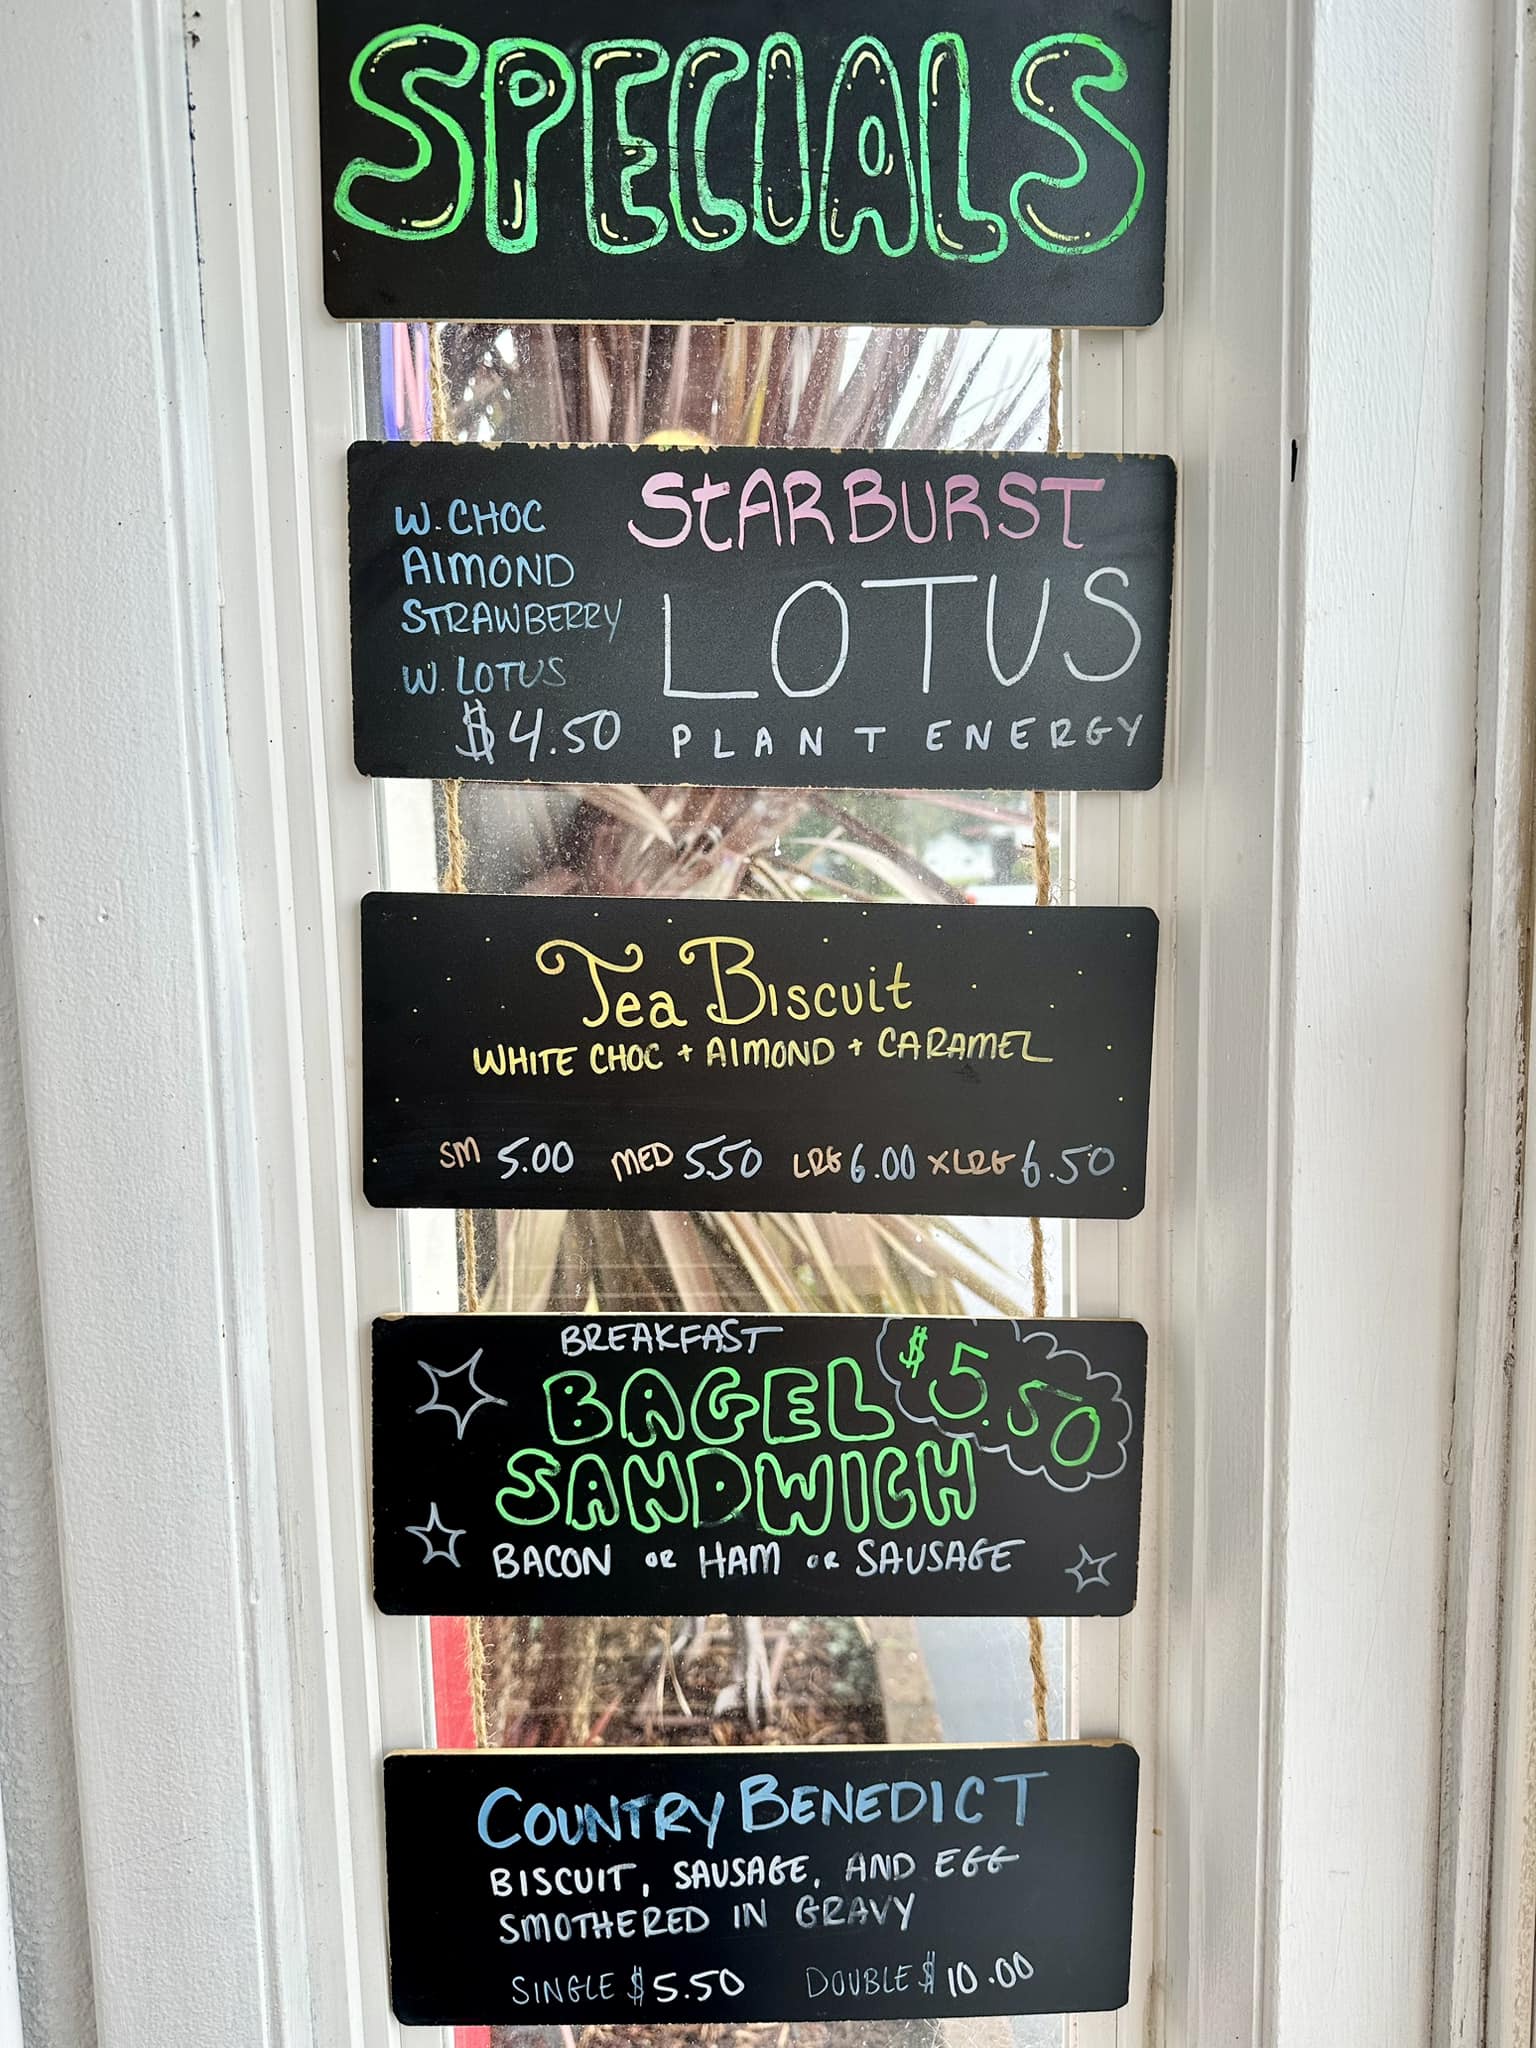 SPECIALS
STARBURST
LOTUS
PLANT ENERGY
W. CHOC
ALMOND
STRAWBERRY
W. LOTUS
$4.50
Tea Biscuit
WHITE CHOC + ALMOND + CARAMEL
SM 5.00 MED 5.50 LRG 6.00 XLRG 6.50
BREAKFAST
BAGEL
SANDWICH
$5.50
BACON OR HAM OR SAUSAGE
COUNTRY BENEDICT
BISCUIT, SAUSAGE, AND EGG
SMOTHERED IN GRAVY
SINGLE $5.50 DOUBLE $10.00